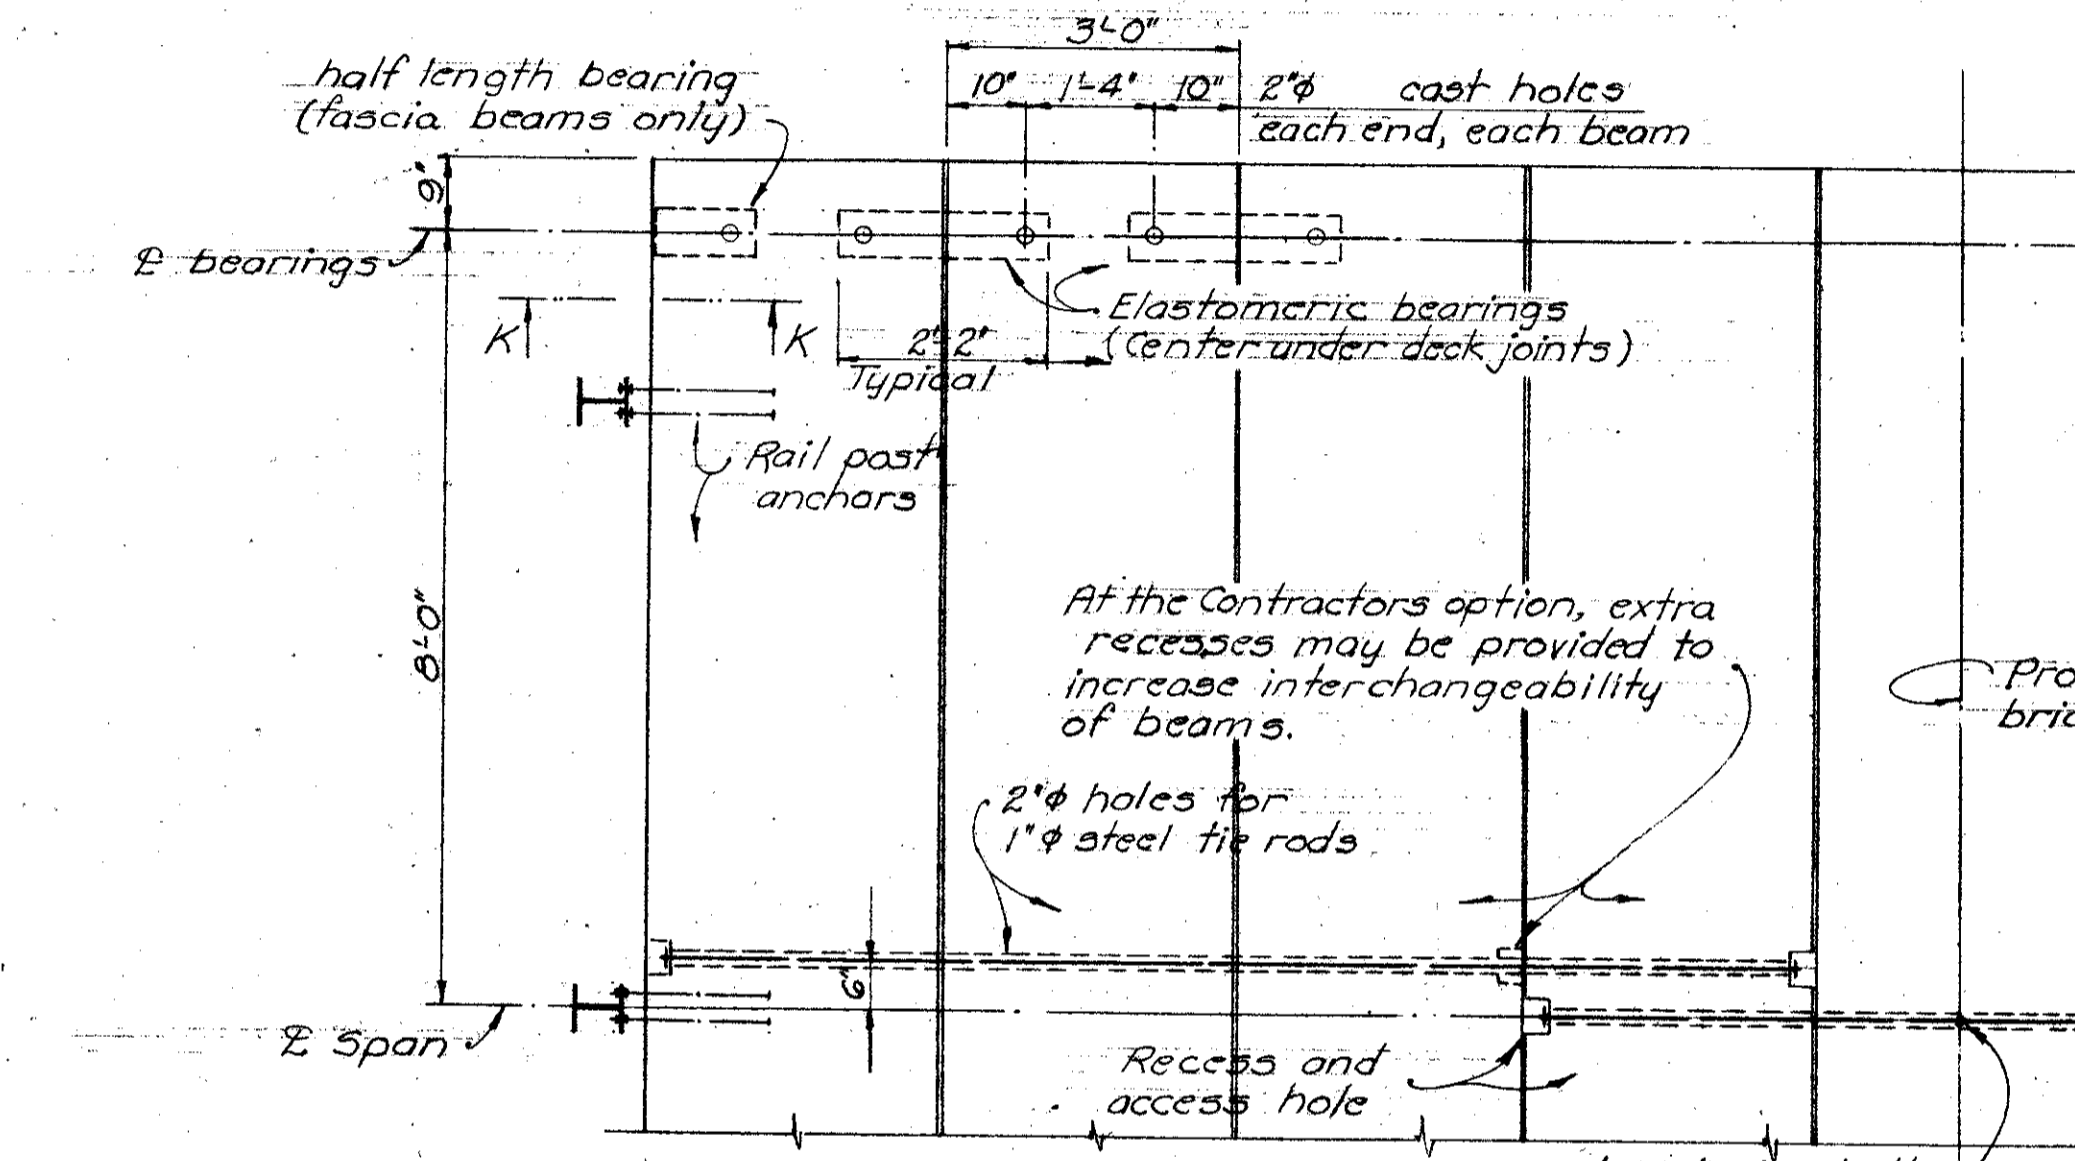 3'-0"
half length bearing
(fascia beams only)
10" 1'-4" 10"
2"ϕ cast holes
each end, each beam
9"
℄ bearings
K K
Elastomeric bearings
(Center under deck joints)
2'-2"
Typical
Rail post
anchors
8'-0"
At the Contractors option, extra
recesses may be provided to
increase interchangeability
of beams.
2"ϕ holes for
1"ϕ steel tie rods
6"
℄ Span
Recess and
access hole